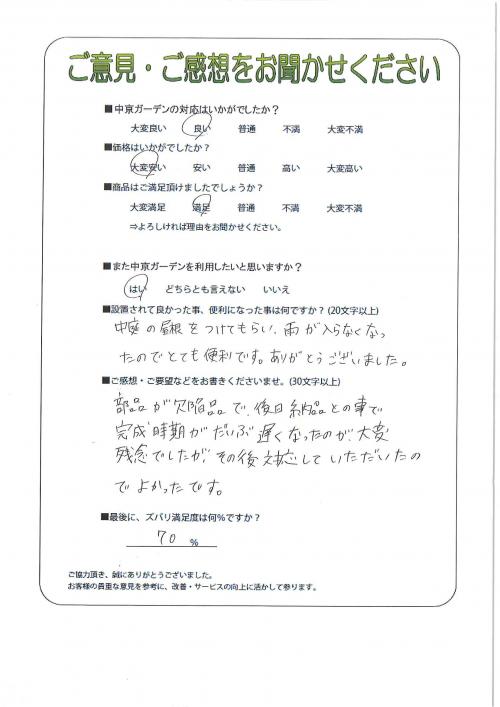 ご意見・ご感想をお聞かせください
■中京ガーデンの対応はいかがでしたか？
大変良い 良い 普通 不満 大変不満
■価格はいかがでしたか？
大変安い 安い 普通 高い 大変高い
■商品はご満足頂けましたでしょうか？
大変満足 満足 普通 不満 大変不満
⇒よろしければ理由をお聞かせください。
■また中京ガーデンを利用したいと思いますか？
はい どちらとも言えない いいえ
■設置されて良かった事、便利になった事は何ですか？(20文字以上)
中庭の屋根をつけてもらい、雨が入らなくなっ
たのでとても便利です。ありがとうございました。
■ご感想・ご要望などをお書きくださいませ。(30文字以上)
部品が欠陥品で、後日納品との事で
完成時期がだいぶ遅くなったのが、大変
残念でしたが、その後対応していただいたの
でよかったです。
■最後に、ズバリ満足度は何％ですか？
70 ％
ご協力頂き、誠にありがとうございました。
お客様の貴重な意見を参考に、改善・サービスの向上に活かして参ります。